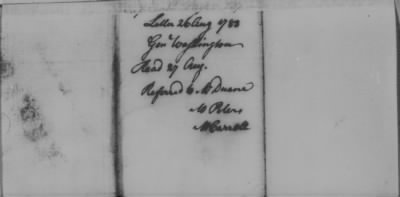 Letter 26 Aug 1783
Genl Washington
Read 27 Aug.
Referred to Mr Duane
Mr Peters
Mr Carroll